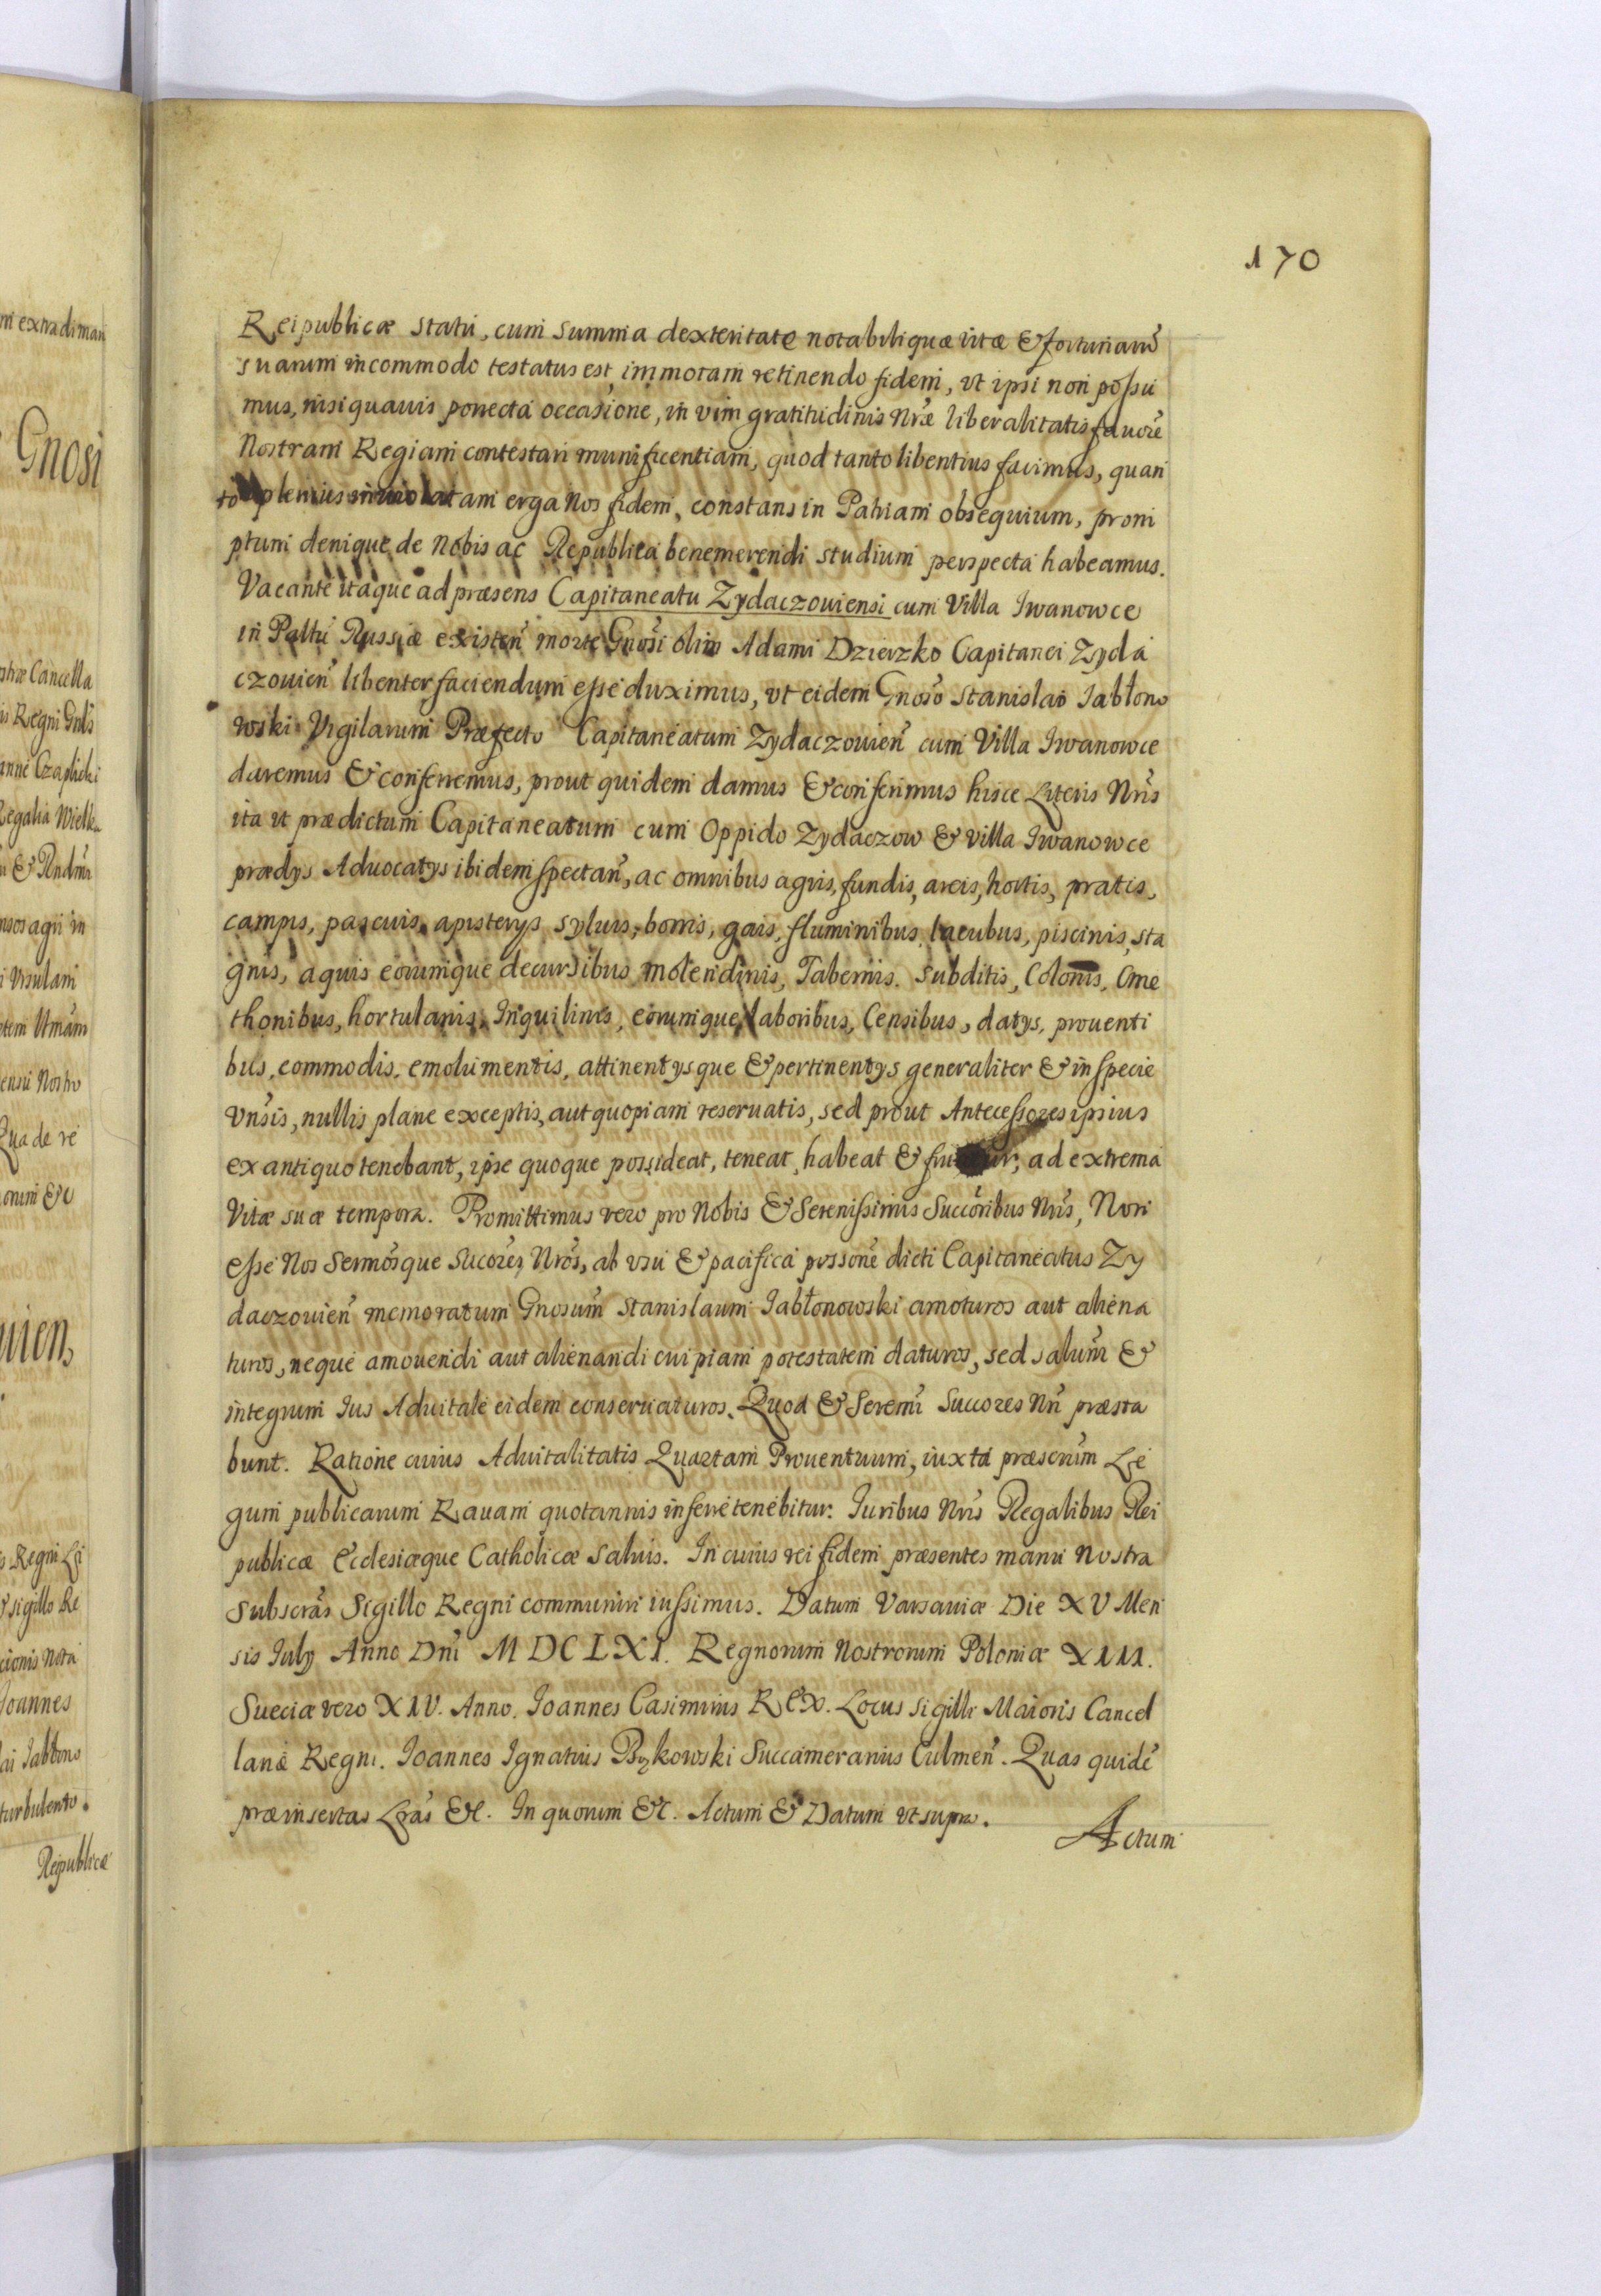 170
Reipublicæ statu, cum summa dexteritate notabilique vitæ & fortunarũ
suarum incommodo testatus est, immotam retinendo fidem, ut ipsi non possu
mus, nisi quavis porrecta occasione, in vim gratitudinis Nræ liberalitatis favore
Nostram Regiam contestari munificentiam, quod tanto libentius facimus, quan
to plenius inviolatam erga Nos fidem, constans in Patriam obsequium, prom
ptum denique de Nobis ac Republica benemerendi studium perspecta habeamus.
Vacante itaque ad præsens Capitaneatu Zydaczouiensi cum Villa Iwanowce
in Pallũ Russiæ existeñ morte Gnosi olim Adami Dzierzko Capitanei Zyda
czouieñ libenter faciendum esse duximus, ut eidem Gnoso Stanislao Jabłono
wski Vigilarum Præfecto Capitaneatum Zydaczouieñ cum Villa Iwanowce
daremus & conferremus, prout quidem damus & conferimus hisce Literis Nris
ita ut prædictum Capitaneatum cum Oppido Zydaczow & villa Iwanowce
prædys Aduocatys ibidem spectañ, ac omnibus agris, fundis, areis, hortis, pratis,
campis, pascuis, apisterys, syluis, borris, gais, fluminibus, lacubus, piscinis, sta
gnis, aquis eorumque decursibus molendinis, Tabernis, subditis, Colonis, Cme
thonibus, hortulanis, Inquilinis, eorumque laboribus, Censibus, datys, prouenti
bus, commodis, emolumentis, attinentysque & pertinentys generaliter & in specie
vnsis, nullis plane exceptis, aut quopiam reseruatis, sed prout Antecessores ipsius
ex antiquo tenebant, ipse quoque possideat, teneat, habeat & fruatur, ad extrema
Vitæ suæ tempora. Promittimus vero pro Nobis & Serenissimis Succoribus Nris, Non
esse Nos Sermosque Sucores Nros, ab usu & pacifica possone dicti Capitaneatus Zy
daczouieñ memoratum Gnosum Stanislaum Jabłonowski amoturos aut aliena
turos, neque amouendi aut alienandi cuipiam potestatem daturos, sed saluum &
integrum Ius Aduitale eidem conseruaturos. Quod & Seremi Succores Nri præsta
bunt. Ratione cuius Aduitalitatis Quartam Prouentuum, iuxta præscrim Le
gum publicarum Rauam quotannis inferre tenebitur. Iuribus Nris Regalibus Rei
publicæ Ecclesiæque Catholicæ saluis. In cuius rei fidem præsentes manu Nostra
Subscras Sigillo Regni communiri iussimus. Datum Varsauiæ Die XV Men
sis July Anno Dni MDCLXI. Regnorum Nostrorum Poloniæ XIII.
Sueciæ vero XIV. Anno. Ioannes Casimirus Rex. Locus sigilli Maioris Cancel
lariæ Regni. Ioannes Ignatius Bąkowski Succamerarius Culmeñ. Quas quidẽ
præinsertas Lras &c. In quorum &c. Actum & Datum ut supra.
Actum
ni extradiman
Gnosi
Regni
anne Czaplicki
Regalia Wielka
nsos agri in
i Vrsulam
Qua de re
uien,
sigillo Re
Ioannes
ai Jabłono
turbulento.
Reipublicæ